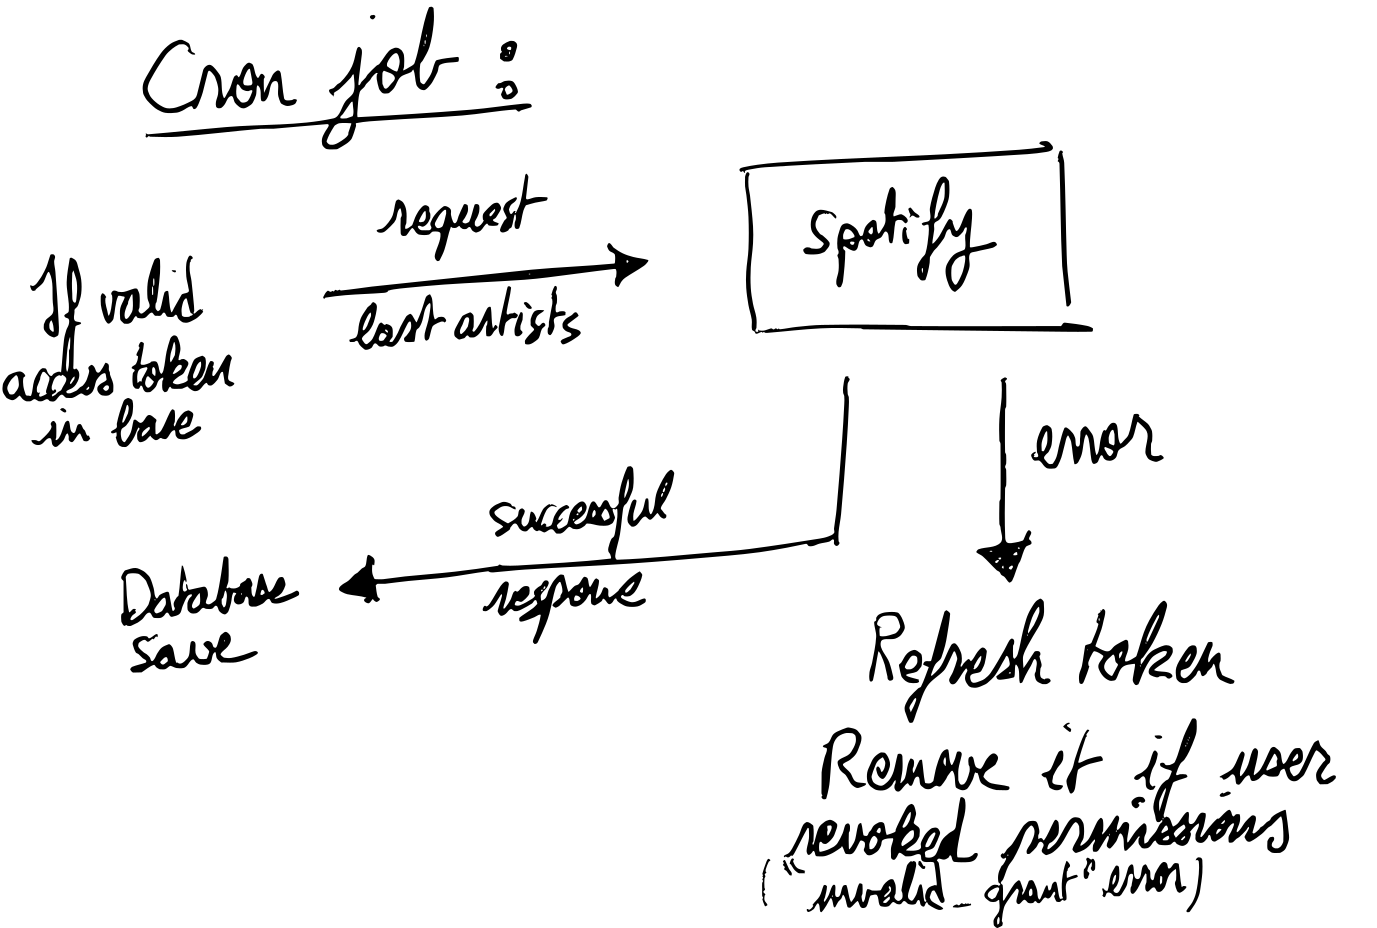 Cron job :
request
last artists
Spotify
If valid
access token
in base
error
successful
response
Database
save
Refresh token
Remove it if user
revoked permissions
("invalid_grant" error)